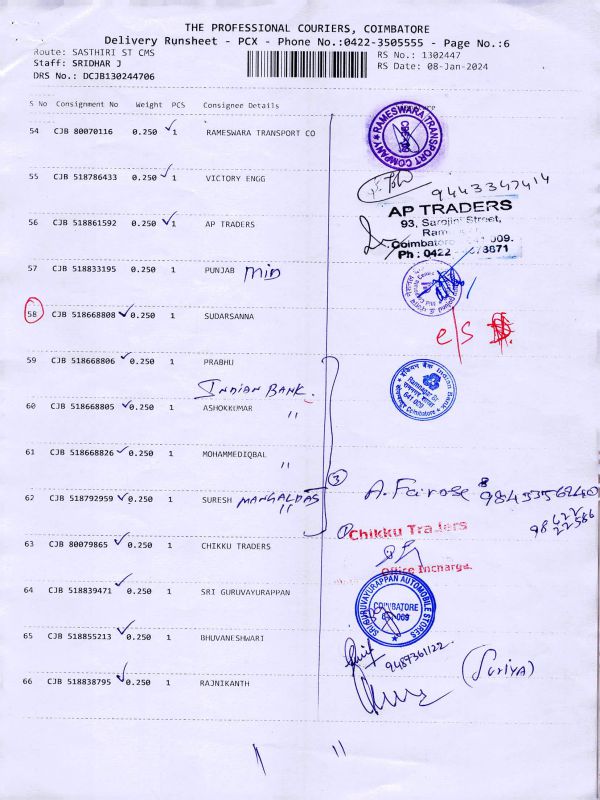 THE PROFESSIONAL COURIERS, COIMBATORE
Delivery Runsheet - PCX - Phone No.:0422-3505555 - Page No.:6
Route: SASTHIRI ST CMS
RS No.: 1302447
Staff: SRIDHAR J
RS Date: 08-Jan-2024
DRS No.: DCJB130244706
S No Consignment No Weight PCS Consignee Details
54 CJB 80070116 0.250 1 RAMESWARA TRANSPORT CO
RAMESWARA TRANSPORT COMPANY
55 CJB 518786433 0.250 1 VICTORY ENGG
9443347414
56 CJB 518861592 0.250 1 AP TRADERS
AP TRADERS
93, Sarojini Street,
Coimbatore 641 009.
Ph : 0422
57 CJB 518833195 0.250 1 PUNJAB min
58 CJB 518668808 0.250 1 SUDARSANNA
e/s
59 CJB 518668806 0.250 1 PRABHU
INDIAN BANK.
Indian Bank
Ramnagar
641 009
Coimbatore
60 CJB 518668805 0.250 1 ASHOKKUMAR "
61 CJB 518668826 0.250 1 MOHAMMEDIQBAL "
3
62 CJB 518792959 0.250 1 SURESH MANGALDAS "
A. Fairose
63 CJB 80079865 1 CHIKKU TRADERS
Chikku Traders
Office Incharge
64 CJB 518839471 0.250 1 SRI GURUVAYURAPPAN
SRI GURUVAYURAPPAN AUTOMOBILE STORES
COIMBATORE
65 CJB 518855213 0.250 1 BHUVANESHWARI
9489361122
66 CJB 518838795 0.250 1 RAJNIKANTH
(Suriya)